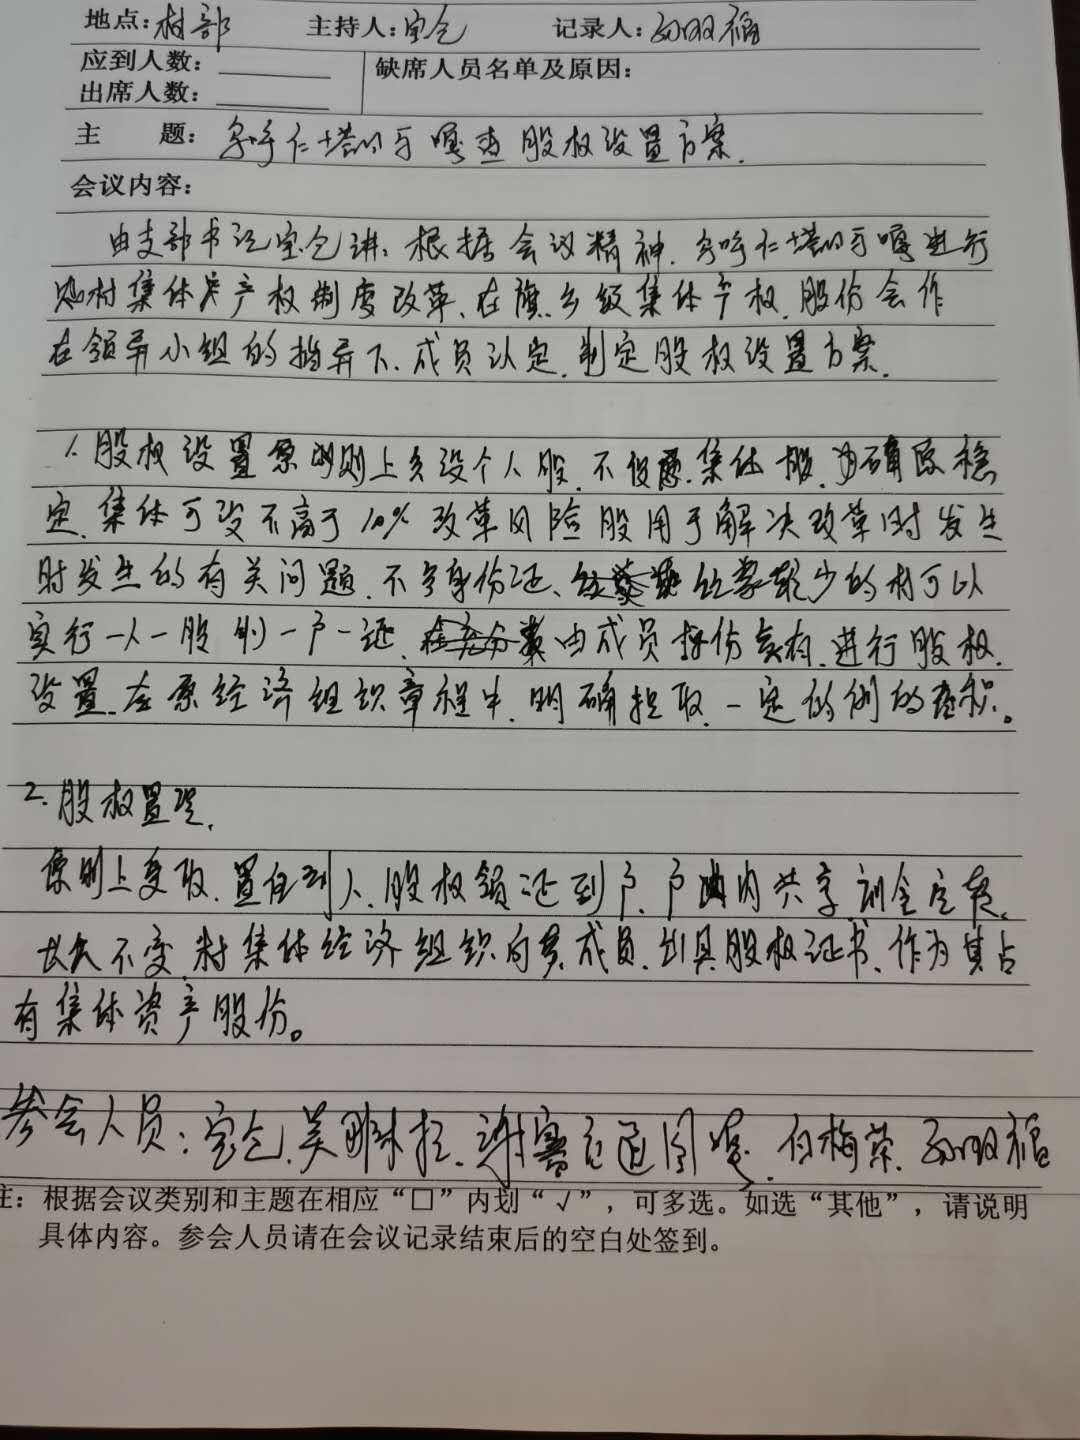 地点：村部 主持人：宝仓 记录人：孙双福
应到人数： 缺席人员名单及原因：
出席人数：
主 题： 仁塔的 嘎查股权设置方案.
会议内容：
由支部书记宝仓讲：根据会议精神. 仁塔的 嘎进行
村集体 产权制度改革、在旗、乡级集体产权、股份合作
在领导小组的指导下、成员认定、制定股权设置方案.
1、股权设置原则上 设个人股、不设 集体股、为确 稳
定、集体可设不高于10%改革风险股用于解决改革时发生
时发生的有关问题、不 身份证、 较少的村可以
实行一人一股制一户一证、 由成员按份 有、进行股权
设置、在 经济组织章程中、明确提取、一定 例的 积。
2、股权置 .
原则上 取、置 到人、股权 证到户、户内共享
长久不变、村集体经济组织向 成员、出具股权证书、作为其占
有集体资产股份。
参会人员：宝仓、吴 、谢 图 、白梅荣、孙双福
注：根据会议类别和主题在相应“□”内划“√”，可多选。如选“其他”，请说明
具体内容。参会人员请在会议记录结束后的空白处签到。